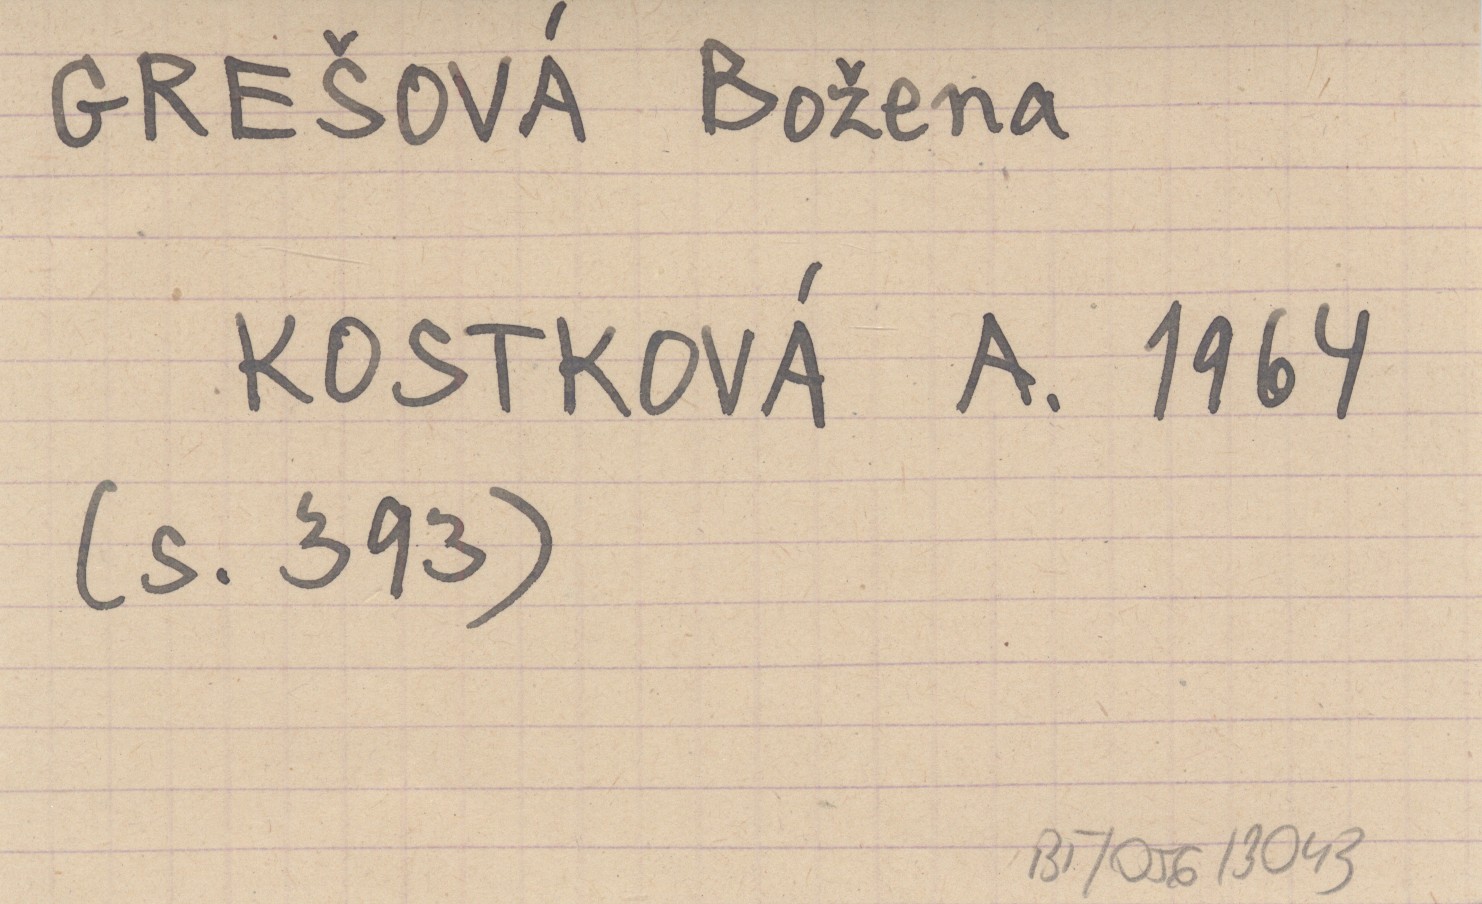 GREŠOVÁ Božena
KOSTKOVÁ A. 1964
(s. 393)
BT/056/3043